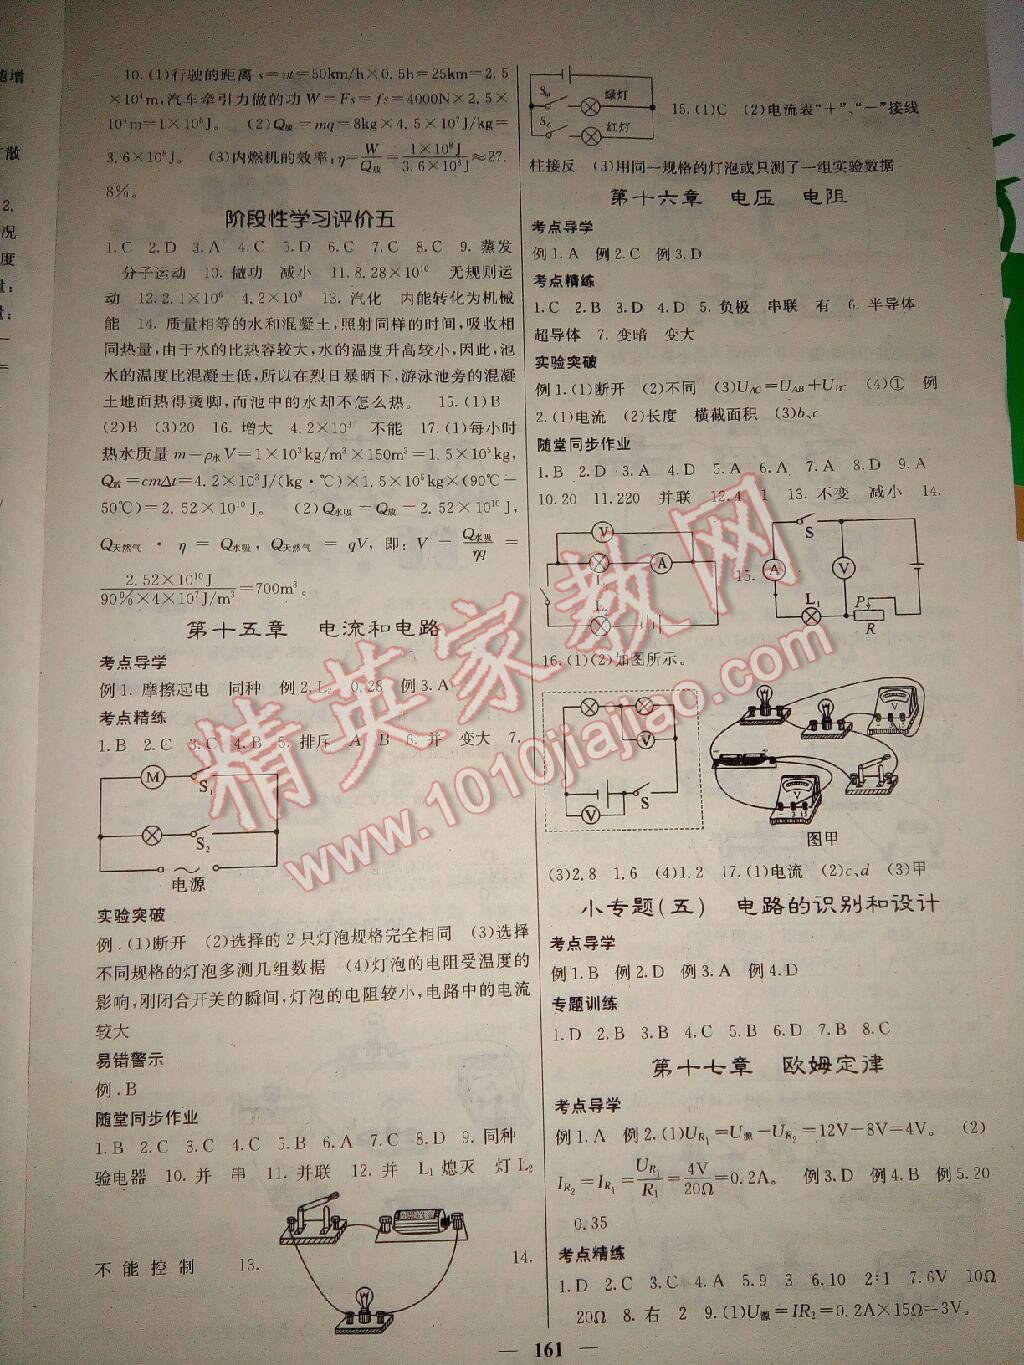 能增
扩散
2.
情况
度
量:
量:
10.(1)行驶的距离 s=vt=50km/h×0.5h=25km=2.5
×10⁴m,汽车牵引力做的功 W=Fs=fs=4000N×2.5×
10⁴m=1×10⁸J。 (2)Q放=mq=8kg×4.5×10⁷J/kg=
3.6×10⁸J。 (3)内燃机的效率:η=W/Q放=1×10⁸J/3.6×10⁸J≈27.
8%。
阶段性学习评价五
1.C 2.D 3.A 4.C 5.D 6.C 7.C 8.C 9.蒸发
分子运动 10.做功 减小 11.8.28×10¹⁰ 无规则运
动 12.2.1×10⁶ 4.2×10³ 13.汽化 内能转化为机械
能 14.质量相等的水和混凝土,照射同样的时间,吸收相
同热量,由于水的比热容较大,水的温度升高较小,因此,池
水的温度比混凝土低,所以在烈日暴晒下,游泳池旁的混凝
土地面热得烫脚,而池中的水却不怎么热。 15.(1)B
(2)B (3)20 16.增大 4.2×10³ 不能 17.(1)每小时
热水质量 m=ρ水V=1×10³kg/m³×150m³=1.5×10⁵kg,
Q放=cmΔt=4.2×10³J/(kg·℃)×1.5×10⁵kg×(90℃-
50℃)=2.52×10¹⁰J。 (2)Q水吸=Q放=2.52×10¹⁰J,
Q天然气·η=Q水吸,Q天然气=qV,即:V=Q水吸/ηq=
2.52×10¹⁰J/90%×4×10⁷J/m³=700m³。
第十五章 电流和电路
考点导学
例1.摩擦起电 同种 例2.L₂ 0.28 例3.A
考点精练
1.B 2.C 3.C 4.B 5.排斥 A B 6.并 变大 7.
M
S₁
S₂
电源
实验突破
例.(1)断开 (2)选择的2只灯泡规格完全相同 (3)选择
不同规格的灯泡多测几组数据 (4)灯泡的电阻受温度的
影响,刚闭合开关的瞬间,灯泡的电阻较小,电路中的电流
较大
易错警示
例.B
随堂同步作业
1.B 2.C 3.C 4.C 5.B 6.A 7.C 8.D 9.同种
验电器 10.并 串 11.并联 12.并 L₁熄灭 灯L₂
不能控制 13. 14.
绿灯
红灯
15.(1)C (2)电流表"+"、"-"接线
柱接反 (3)用同一规格的灯泡或只测了一组实验数据
第十六章 电压 电阻
考点导学
例1.A 例2.C 例3.D
考点精练
1.C 2.B 3.D 4.D 5.负极 串联 有 6.半导体
超导体 7.变暗 变大
实验突破
例1.(1)断开 (2)不同 (3)U_AC=U_AB+U_BC (4)① 例
2.(1)电流 (2)长度 横截面积 (3)b、c
随堂同步作业
1.B 2.D 3.C 4.D 5.A 6.A 7.A 8.D 9.A
10.20 11.220 并联 12.4 1 13.不变 减小 14.
V
A
V
15.
S
A
V
L₁
P
R
16.(1)(2)如图所示。
V
V
S
V
V
图甲
(3)2.8 1.6 (4)1.2 17.(1)电流 (2)c、d (3)甲
小专题(五) 电路的识别和设计
考点导学
例1.B 例2.D 例3.A 例4.D
专题训练
1.D 2.B 3.B 4.C 5.B 6.D 7.B 8.C
第十七章 欧姆定律
考点导学
例1.A 例2.(1)U_R₁=U源-U_R₂=12V-8V=4V。 (2)
I_R₂=I_R₁=U_R₁/R₁=4V/20Ω=0.2A。 例3.D 例4.B 例5.20
0.35
考点精练
1.D 2.C 3.C 4.A 5.9 3 6.10 2:1 7.6V 10Ω
20Ω 8.右 2 9.(1)U源=IR=0.2A×15Ω=3V。
161
精英家教网
www.1010jiajiao.com